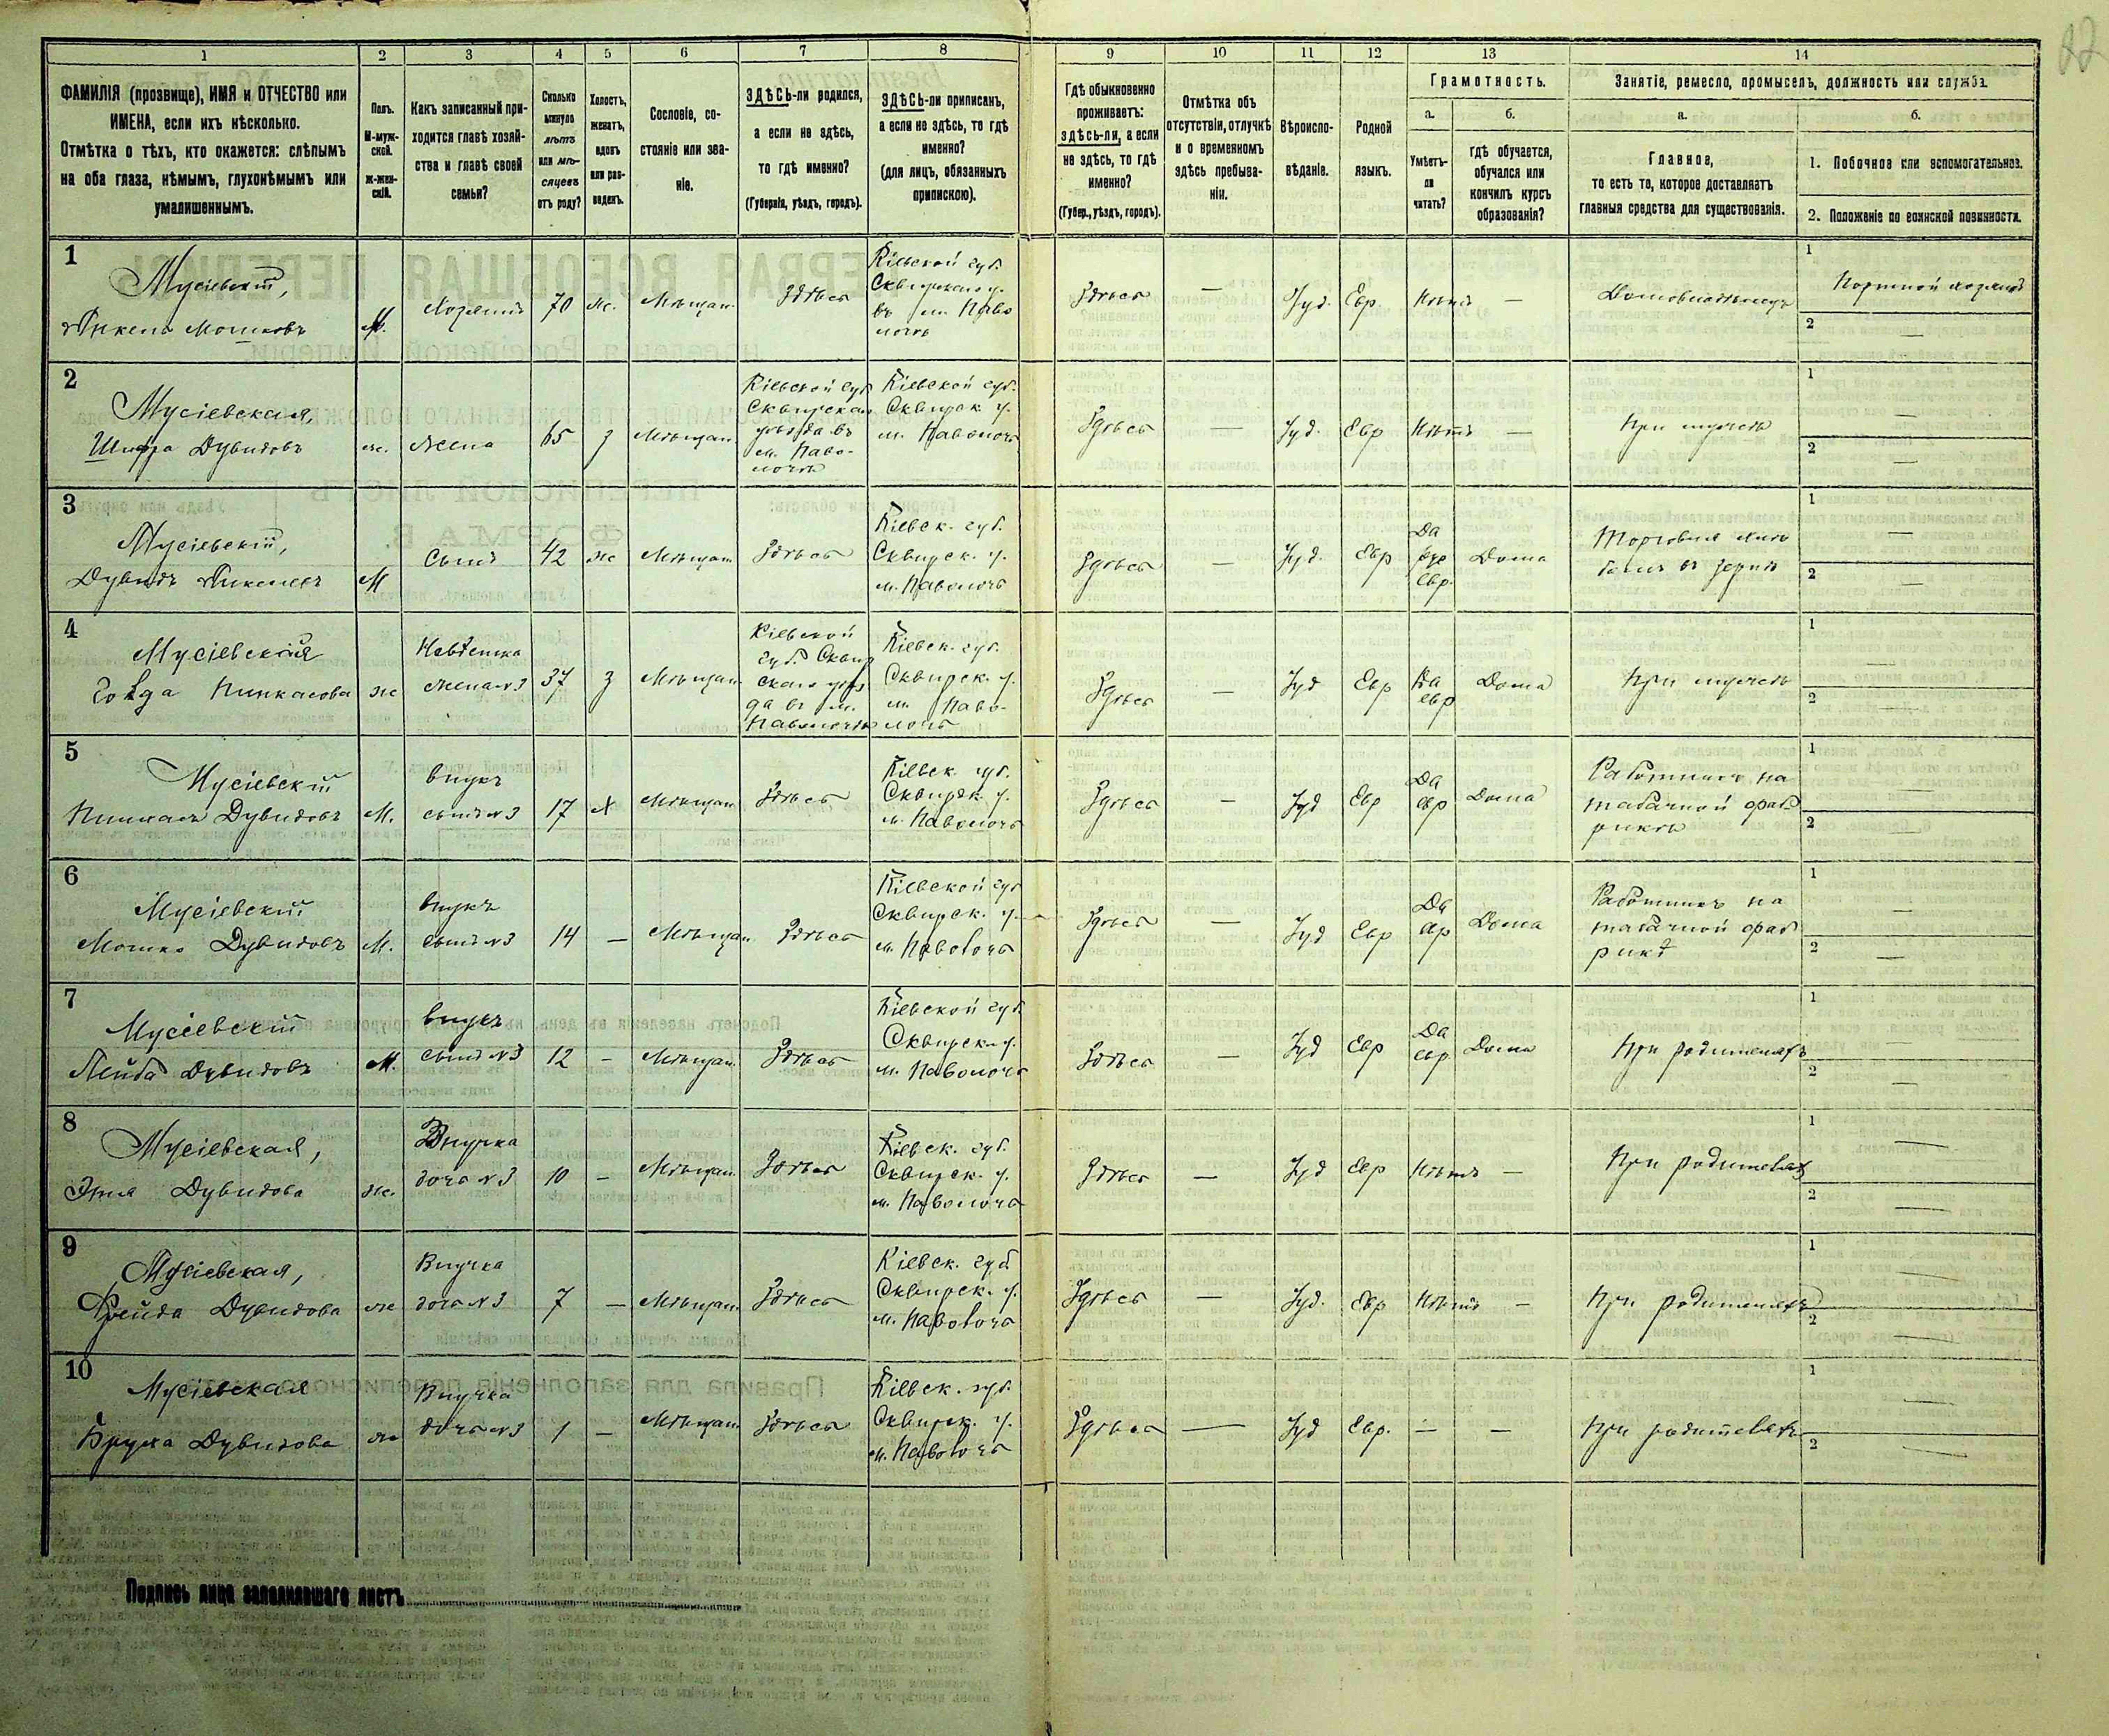 82
1 2 3 4 5 6 7 8 9 10 11 12 13 14
ФАМИЛІЯ (прозвище), ИМЯ и ОТЧЕСТВО или
ИМЕНА, если ихъ нѣсколько.
Отмѣтка о тѣхъ, кто окажется: слѣпымъ
на оба глаза, нѣмымъ, глухонѣмымъ или
умалишеннымъ.
Полъ.
М-муж-
ской.
Ж-жен-
скій.
Какъ записанный при-
ходится главѣ хозяй-
ства и главѣ своей
семьи?
Сколько
минуло
лѣтъ
или мѣ-
сяцевъ
отъ роду?
Холостъ,
женатъ,
вдовъ
или раз-
веденъ.
Сословіе, со-
стояніе или зва-
ніе.
ЗДѢСЬ-ли родился,
а если не здѣсь,
то гдѣ именно?
(Губернія, уѣздъ, городъ).
ЗДѢСЬ-ли приписанъ,
а если не здѣсь, то гдѣ
именно?
(для лицъ, обязанныхъ
припискою).
Гдѣ обыкновенно
проживаетъ:
здѣсь-ли, а если
не здѣсь, то гдѣ
именно?
(Губер., уѣздъ, городъ).
Отмѣтка объ
отсутствіи, отлучкѣ
и о временномъ
здѣсь пребыва-
ніи.
Вѣроиспо-
вѣданіе.
Родной
языкъ.
Грамотность.
а.
Умѣетъ-
ли
читать?
б.
гдѣ обучается,
обучался или
кончилъ курсъ
образованія?
Занятіе, ремесло, промыселъ, должность или служба.
а.
Главное,
то есть то, которое доставляетъ
главныя средства для существованія.
б.
1. Побочное или вспомогательное.
2. Положеніе по воинской повинности.
1
Мусіевскій,
Мошковъ
М.
Хозяинъ
70
ж.
Мѣщан.
Здѣсь
Кіевской губ.
Сквирскаго у.
въ м. Паво
лочѣ
Здѣсь
—
Іуд.
Евр.
Нѣтъ
—
Домовладѣлецъ
1
Портной хозяинъ
2
—
2
Мусіевская,
Шифра Дувидовъ
ж.
жена
65
З
Мѣщан
Кіевской губ
Сквирскаго
уѣзда въ
м. Паво-
лочѣ
Кіевской губ.
Сквирск у.
м. Паволочь
Здѣсь
—
Іуд.
Евр
Нѣтъ
—
При мужѣ
1
—
2
—
3
Мусіевскій,
Дувидъ
М
Сынъ
42
ж
Мѣщан
Здѣсь
Кіевск. губ.
Сквирск. у.
м. Паволочь
Здѣсь
—
Іуд.
Евр
Да
Евр.
Дома
Торговля
въ зернѣ
1
—
2
—
4
Мусіевская
Пинкасова
ж
Невѣстка
жена №3
37
З
Мѣщан.
Кіевской
губ. Сквир
скаго уѣз
да въ м.
Паволочѣ
Кіевск. губ.
Сквирск. у.
м. Паво-
лочь
Здѣсь
—
Іуд
Евр
Да
евр
Дома
При мужѣ
1
—
2
—
5
Мусіевскій
Пинкасъ Дувидовъ
М.
внукъ
сынъ №3
17
Х
Мѣщан
Здѣсь
Кіевск. губ.
Сквирск. у.
м. Паволочь
Здѣсь
—
Іуд
Евр
Да
евр
Дома
Работникъ на
табачной фаб
рикѣ
1
—
2
—
6
Мусіевскій
Мошко Дувидовъ
М.
внукъ
сынъ №3
14
—
Мѣщан
Здѣсь
Кіевской губ
Сквирск. у.
м. Паволочь
Здѣсь
—
Іуд
Евр
Да
Дома
Работникъ на
табачной фаб
рикѣ
1
—
2
—
7
Мусіевскій
Лейба Дувидовъ
М.
внукъ
сынъ №3
12
—
Мѣщан.
Здѣсь
Кіевской губ.
Сквирск. у.
м. Паволочь
Здѣсь
—
Іуд
Евр
Да
евр
Дома
При родителяхъ
1
—
2
—
8
Мусіевская,
Дувидова
ж.
Внучка
дочь №3
10
—
Мѣщан.
Здѣсь
Кіевск. губ.
Сквирск. у.
м. Паволочь
Здѣсь
—
Іуд
Евр
Нѣтъ
—
При родителяхъ
1
—
2
—
9
Мусіевская,
Фрейда Дувидова
ж
Внучка
дочь №3
7
—
Мѣщан.
Здѣсь
Кіевск. губ
Сквирск. у.
м. Паволочь
Здѣсь
—
Іуд.
Евр
Нѣтъ
—
При родителяхъ
1
—
2
—
10
Мусіевская
Бруха Дувидова
ж
Внучка
дочь №3
1
—
Мѣщан.
Здѣсь
Кіевск. губ.
Сквирск. у.
м. Паволочь
Здѣсь
—
Іуд
Евр.
—
—
При родителяхъ
1
—
2
—
Подпись лица заполнявшаго листъ